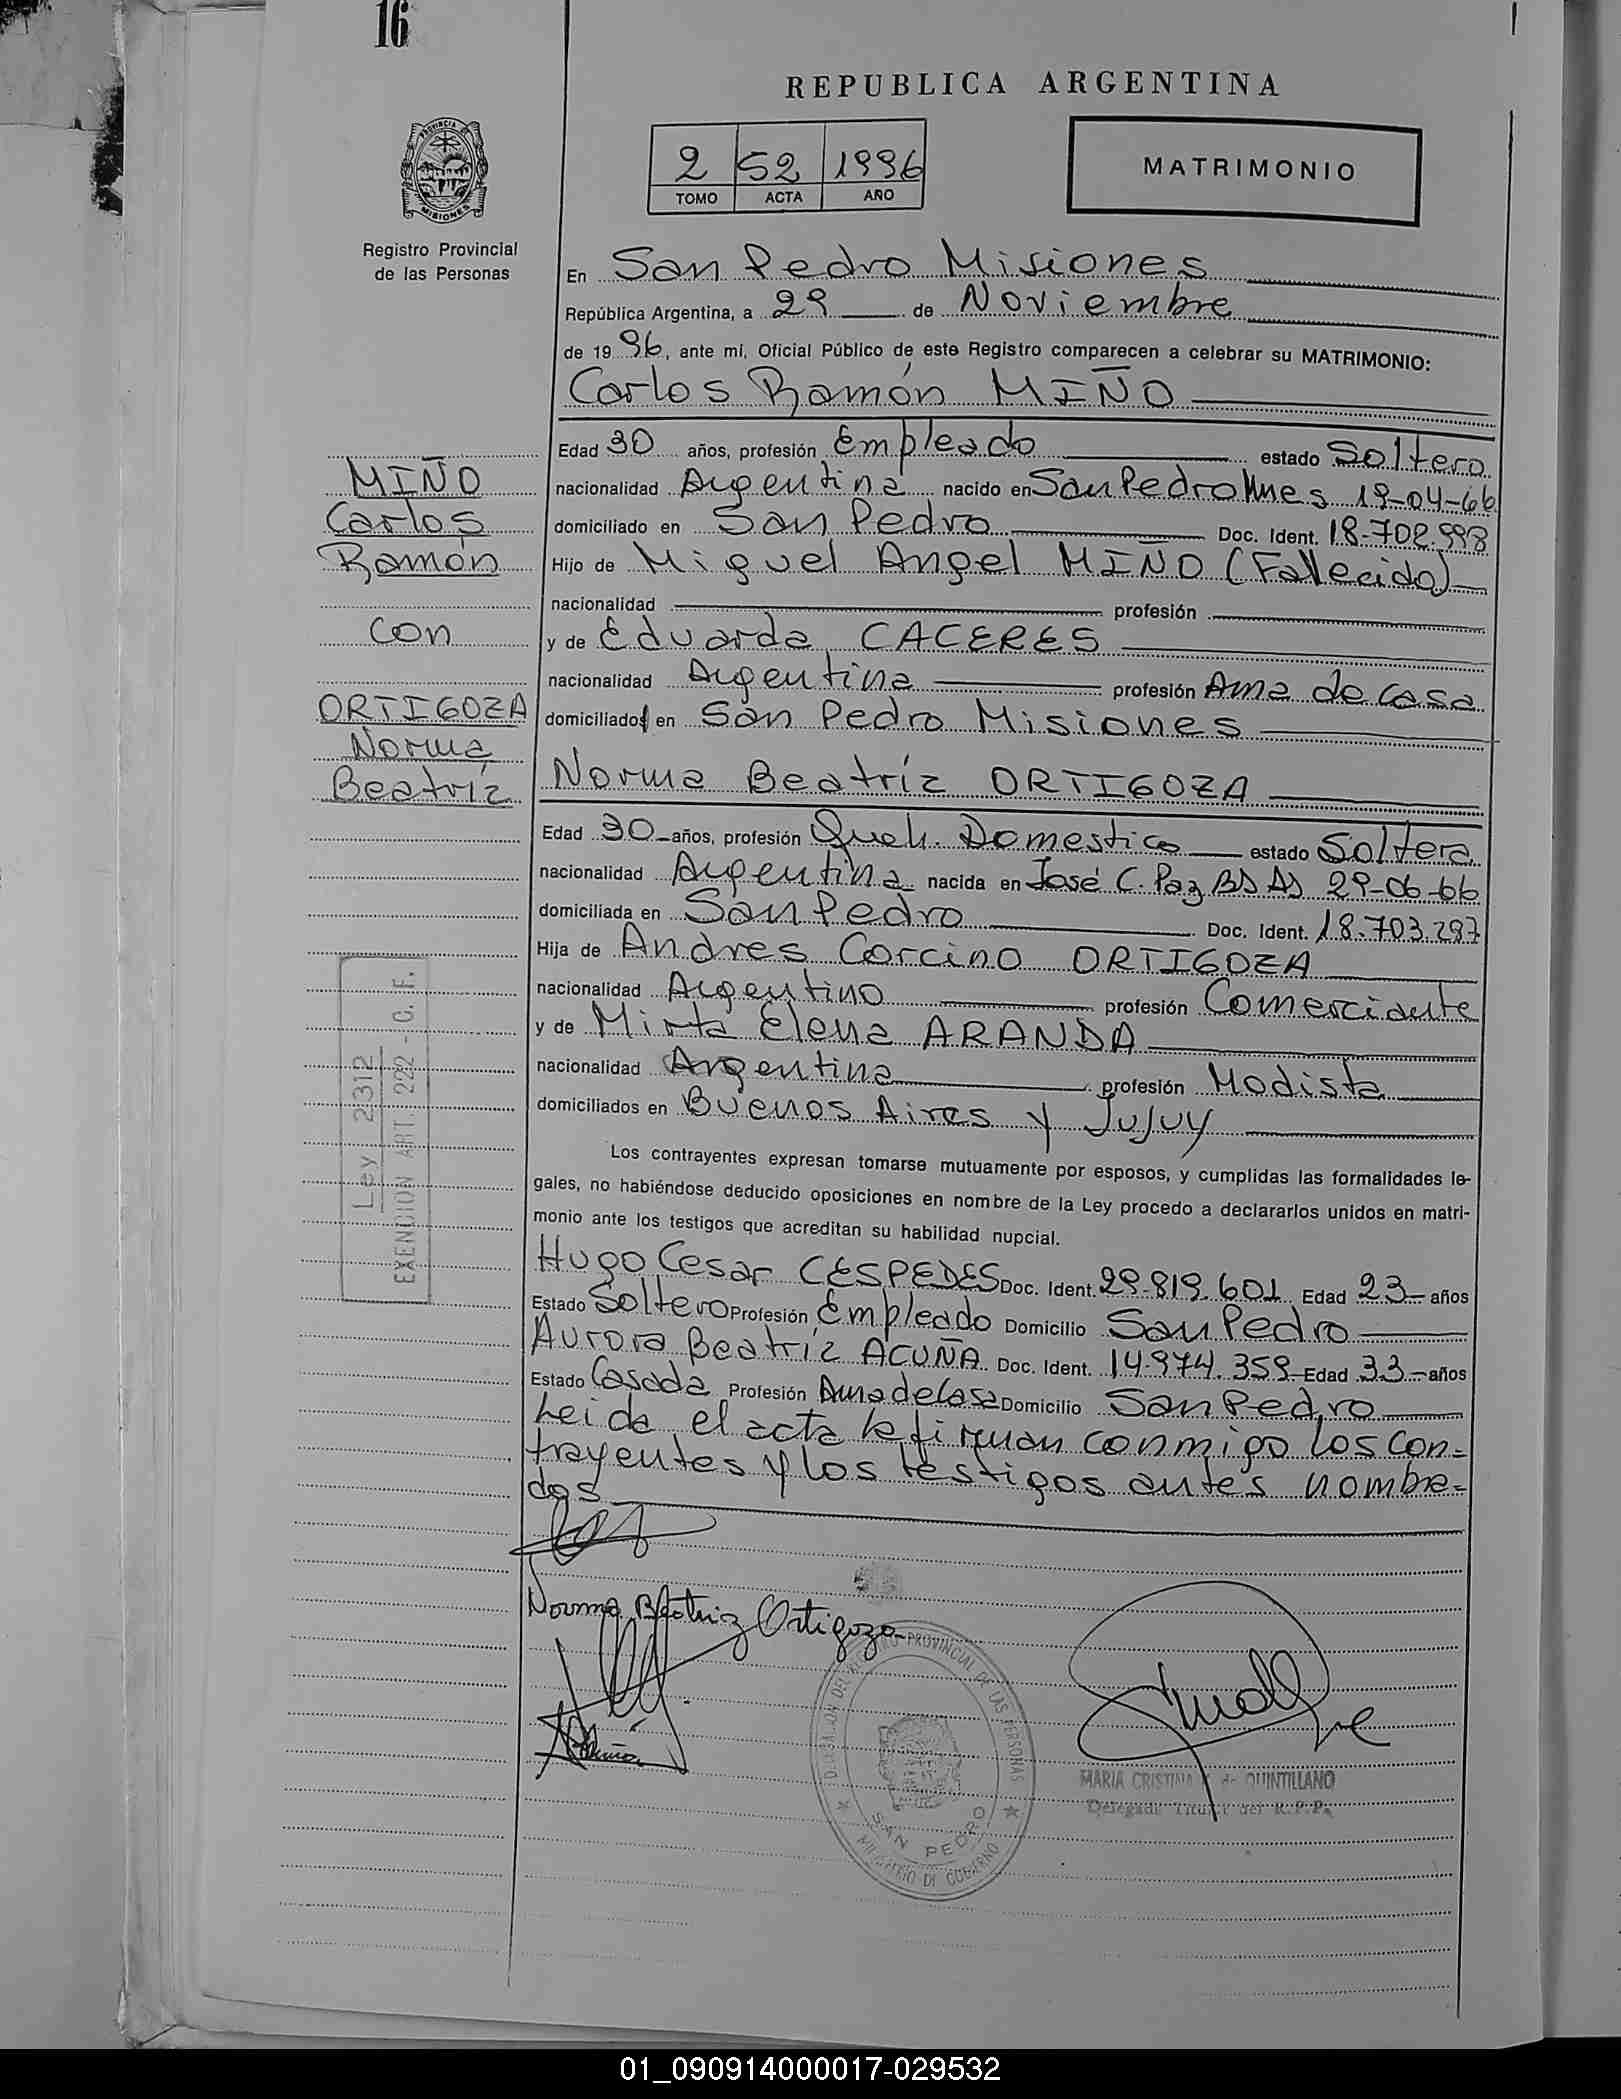 16
REPUBLICA ARGENTINA
PROVINCIA DE
MISIONES
Registro Provincial
de las Personas
2 52 1996
TOMO ACTA AÑO
MATRIMONIO
En San Pedro Misiones
República Argentina, a 29 de Noviembre
de 19 96, ante mí, Oficial Público de este Registro comparecen a celebrar su MATRIMONIO:
Carlos Ramón MIÑO
Edad 30 años, profesión Empleado estado Soltero
nacionalidad Argentina nacido en San Pedro Mnes 19-04-66
domiciliado en San Pedro Doc. Ident. 18-702.998
Hijo de Miguel Angel MIÑO (Fallecido)
nacionalidad profesión
y de Eduarda CACERES
nacionalidad Argentina profesión Ama de casa
domiciliados en San Pedro Misiones
MIÑO
Carlos
Ramón
con
ORTIGOZA
Norma
Beatríz
Norma Beatríz ORTIGOZA
Edad 30 años, profesión Queh. Domestico estado Soltera
nacionalidad Argentina nacida en José C. Paz BS AS 29-06-66
domiciliada en San Pedro Doc. Ident. 18.703.297
Hija de Andres Corcino ORTIGOZA
nacionalidad Argentino profesión Comerciante
y de Mirta Elena ARANDA
nacionalidad Argentina profesión Modista
domiciliados en Buenos Aires y Jujuy
Ley 2312
EXENCION ART. 222 - C. F.
Los contrayentes expresan tomarse mutuamente por esposos, y cumplidas las formalidades le-
gales, no habiéndose deducido oposiciones en nombre de la Ley procedo a declararlos unidos en matri-
monio ante los testigos que acreditan su habilidad nupcial.
Hugo Cesar CESPEDES Doc. Ident. 29.819.601 Edad 23 años
Estado Soltero Profesión Empleado Domicilio San Pedro
Aurora Beatríz ACUÑA Doc. Ident. 14.974.359 Edad 33 años
Estado Casada Profesión Ama de Casa Domicilio San Pedro
Leida el acta la firman conmigo los con=
trayentes y los testigos antes nombre=
dos
Norma Beatriz Ortigoza
DELEGACION DEL REGISTRO PROVINCIAL DE LAS PERSONAS
SAN PEDRO
MINISTERIO DE GOBIERNO
MARIA CRISTINA de QUINTILLANO
Delegada Titular del R.P.P.
01_090914000017-029532